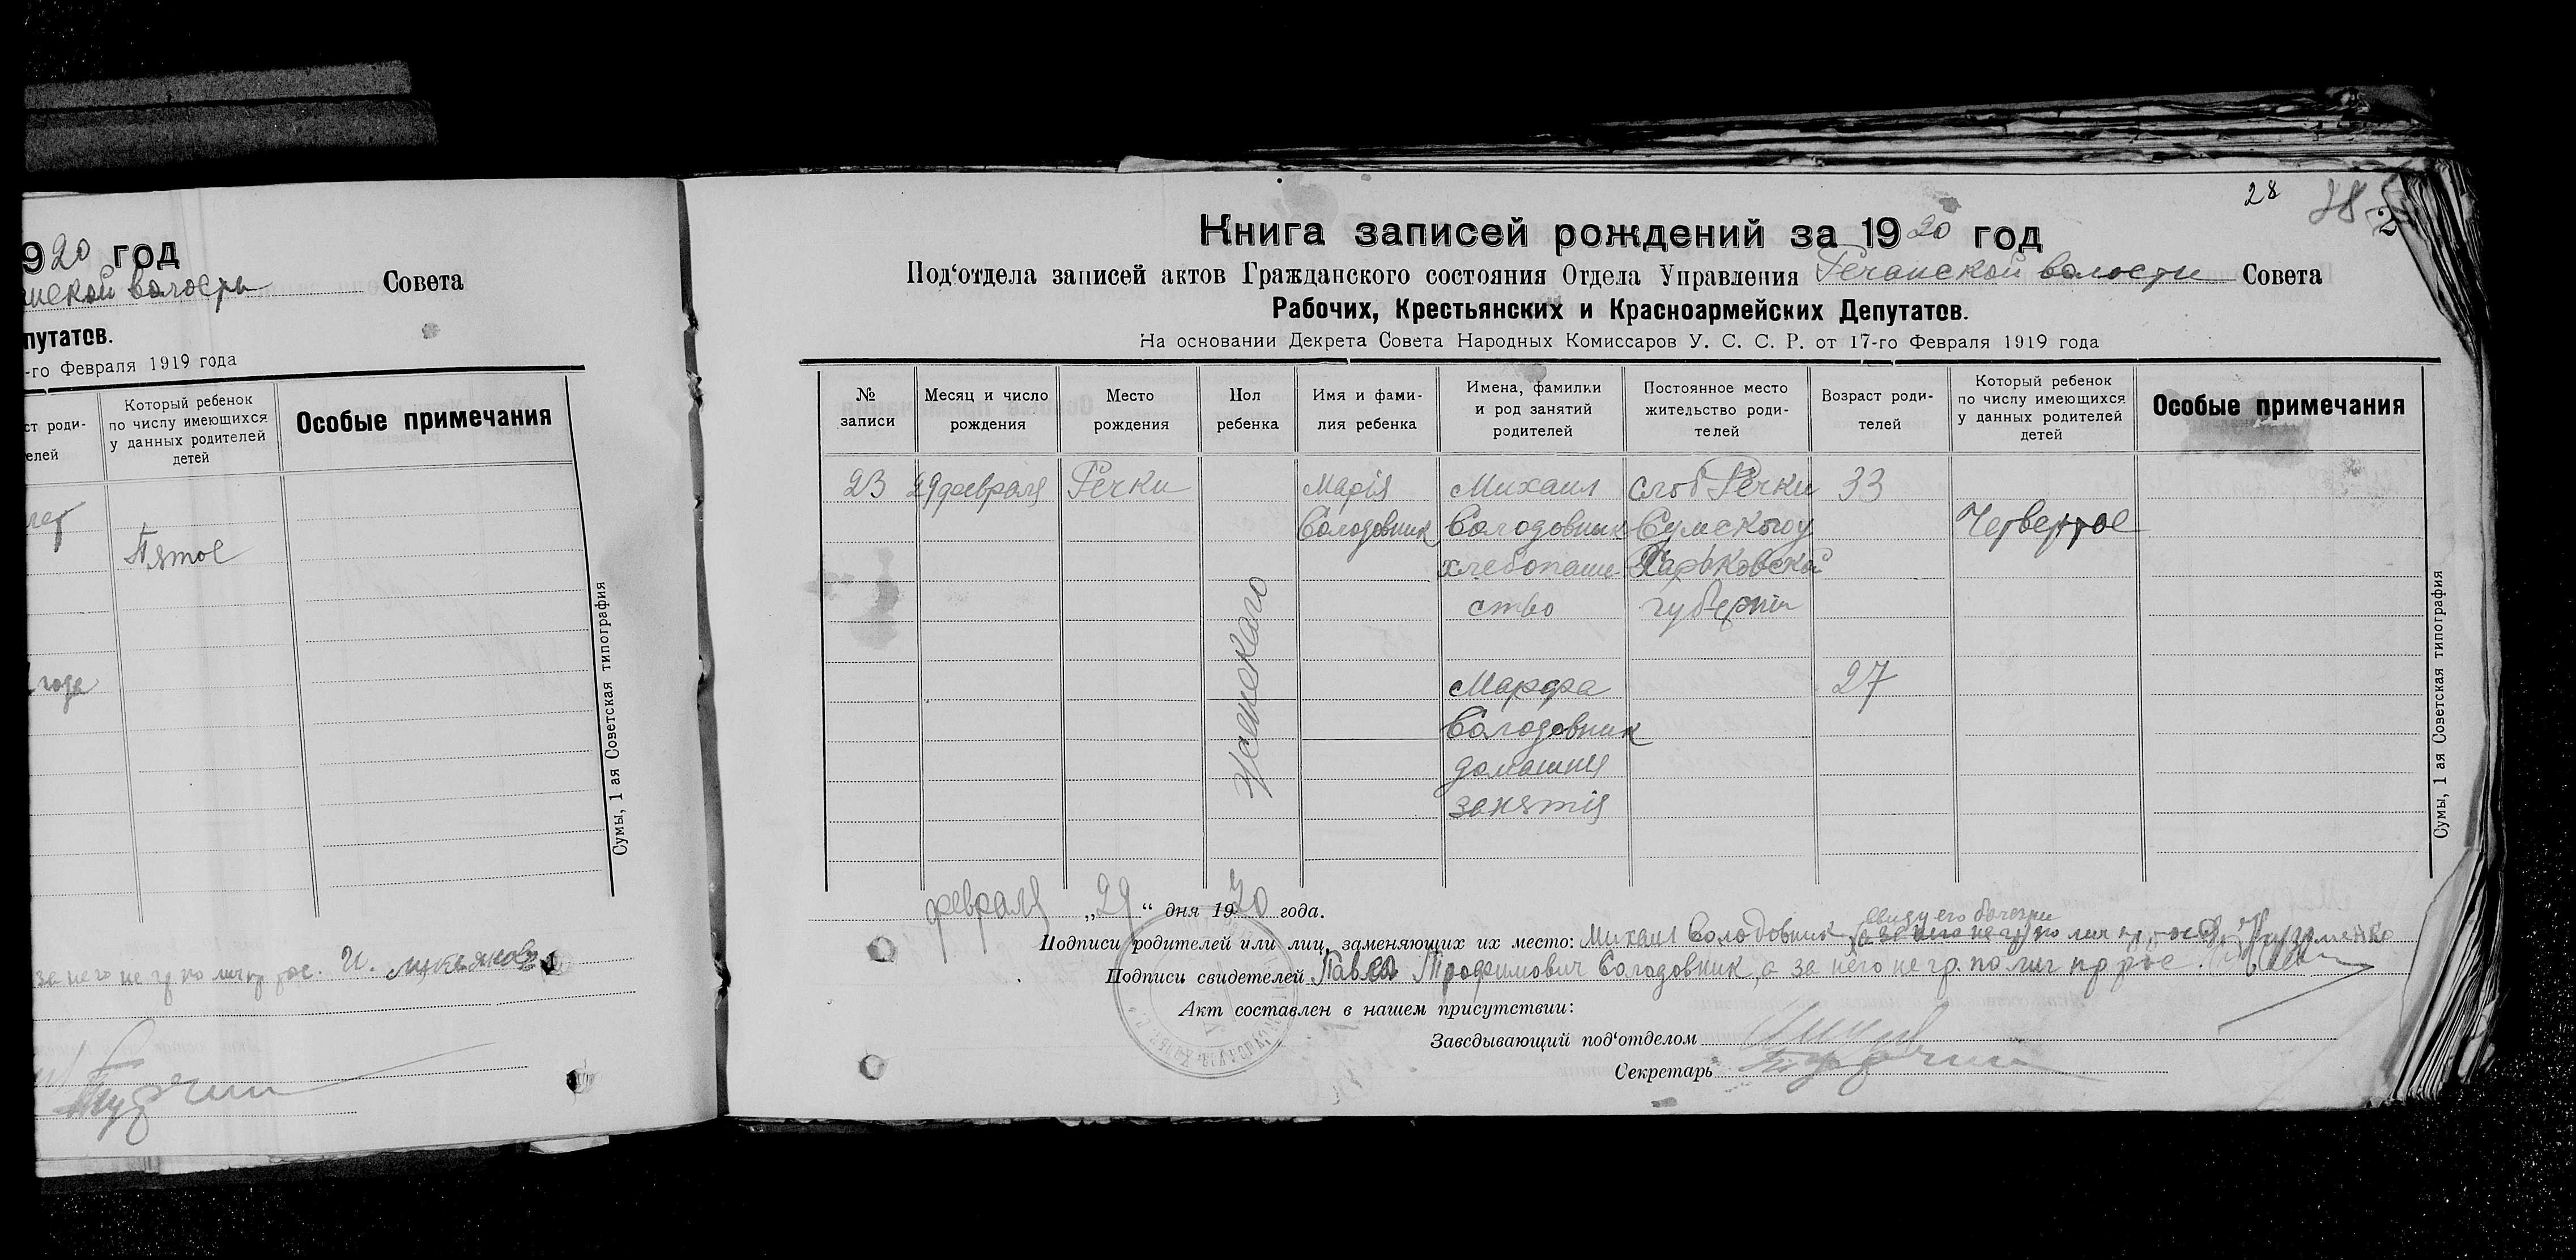 920 год
нской волости Совета
путатов.
-го Февраля 1919 года
ст роди-
елей
Который ребенок
по числу имеющихся
у данных родителей
детей
Особые примечания
лет
Пятое
года
Сумы, 1 ая Советская типография
за него негр по личн прос. И. Лукьянов
28
Книга записей рождений за 1920 год
Под‘отдела записей актов Гражданского состояния Отдела Управления Речанской волости Совета
Рабочих, Крестьянских и Красноармейских Депутатов.
На основании Декрета Совета Народных Комиссаров У. С. С. Р. от 17-го Февраля 1919 года
№
записи
Месяц и число
рождения
Место
рождения
Пол
ребенка
Имя и фами-
лия ребенка
Имена, фамилии
и род занятий
родителей
Постоянное место
жительство роди-
телей
Возраст роди-
телей
Который ребенок
по числу имеющихся
у данных родителей
детей
Особые примечания
23
29 февраля
Речки
женскаго
Марія
Солодовник
Михаил
Солодовник
хлебопаше
ство
Марфа
Солодовник
домашнія
занятія
слоб Речки
Сумского у
Харьковской
губерніи
33
27
Четвертое
Сумы, 1 ая Советская типография
февраля „29“ дня 1920 года.
ввиду его болезни
Подписи родителей или лиц, заменяющих их место: Михаил Солодовник
Подписи свидетелей Павел Трофимович Солодовник, а за него негр. по лич прозбе
Акт составлен в нашем присутствии:
Заведывающий под‘отделом
Секретарь